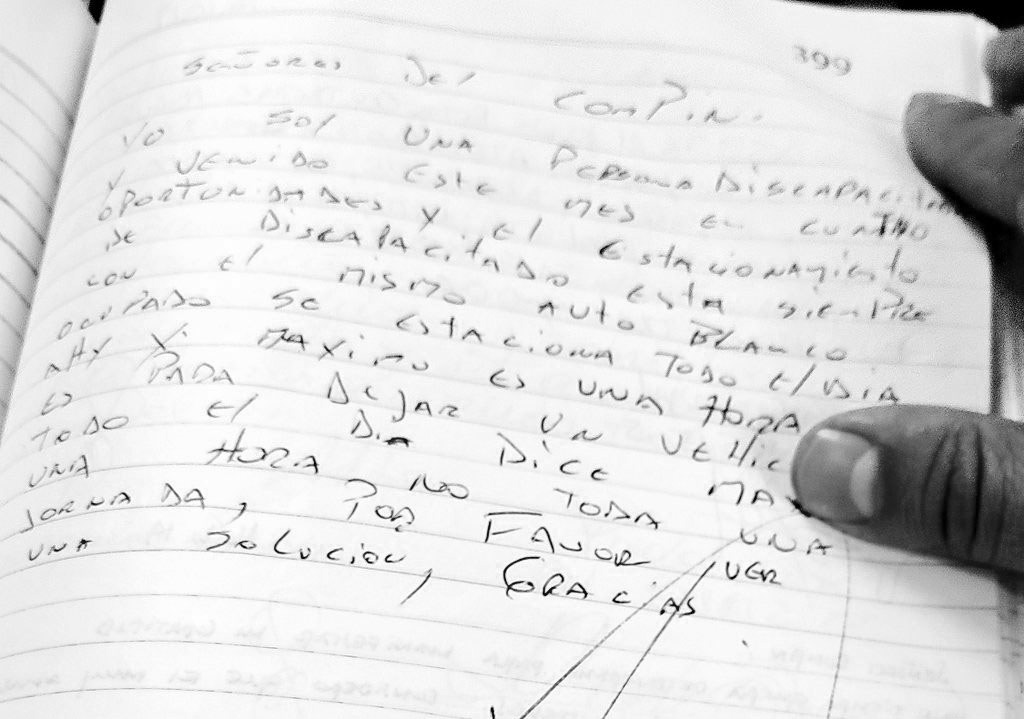 399
SEÑORES DEL COMPIN.
YO SOY UNA PERSONA DISCAPACITADA
Y VENIDO ESTE MES EN CUATRO
OPORTUNIDADES Y EL ESTACIONAMIENTO
DE DISCAPACITADO ESTA SIEMPRE
CON EL MISMO AUTO BLANCO
OCUPADO SE ESTACIONA TODO EL DIA
AHY Y. MAXIMO ES UNA HORA
ES PADA DEJAR UN VEHIC
TODO EL DIA DICE MAX
UNA HORA NO TODA UNA
JORNADA, POR FAVOR VER
UNA SOLUCION, GRACIAS